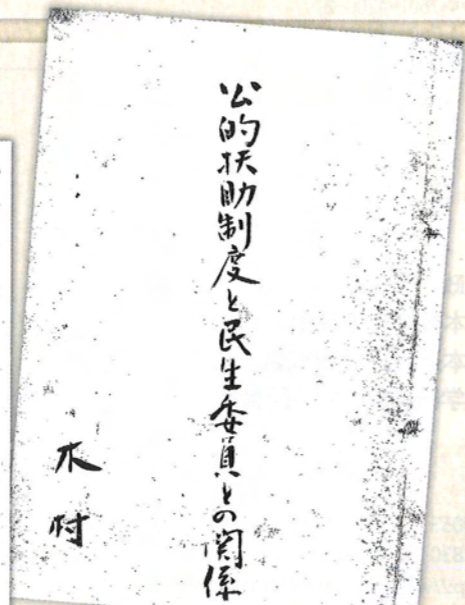 公的扶助制度と民生委員との関係
木村